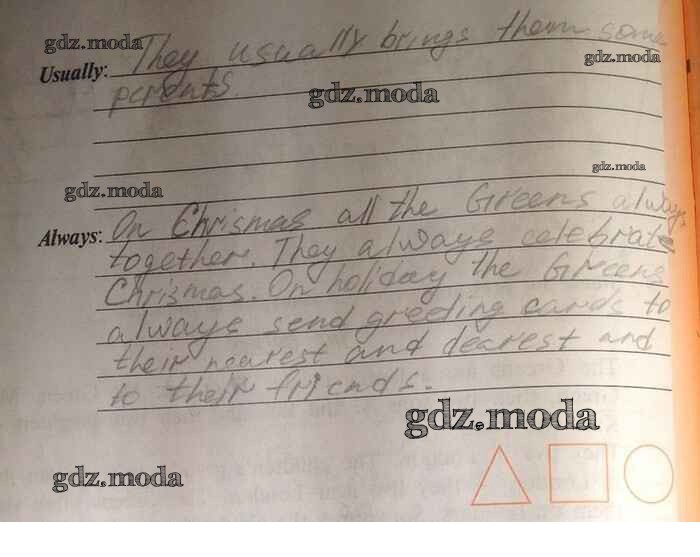 gdz.moda
Usually: They usually brings them some
gdz.moda
parents.
gdz.moda
gdz.moda
gdz.moda
Always: On Chrismas all the Greens always
together. They always celebrate
Chrismas. On holiday the Greens
always send greeting cards to
their nearest and dearest and
to their friends.
gdz.moda
gdz.moda